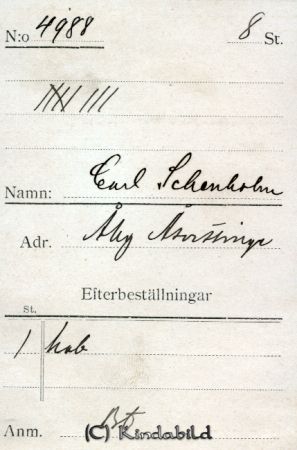 N:o 4988 8 St.
Namn: Carl Schenholm
Adr. Åby
Efterbeställningar
st.
1 kab
Anm. Bts
(C) Kindabild